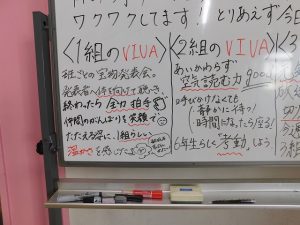 ワクワクしてます! とりあえず 今日
〈1組のVIVA〉
班ごとの宝物発表会。
発表者へ体を向けて聴き、
終わったら 全力拍手
仲間のがんばりを笑顔で
たたえる姿に、1組らしい
温かさを感じたよ
〈2組のVIVA〉
あいかわらず
空気読む力good
呼びかけなくても
・静かに待つ!
・時間になったら座る!
6年生らしく"考動"しよう
〈3